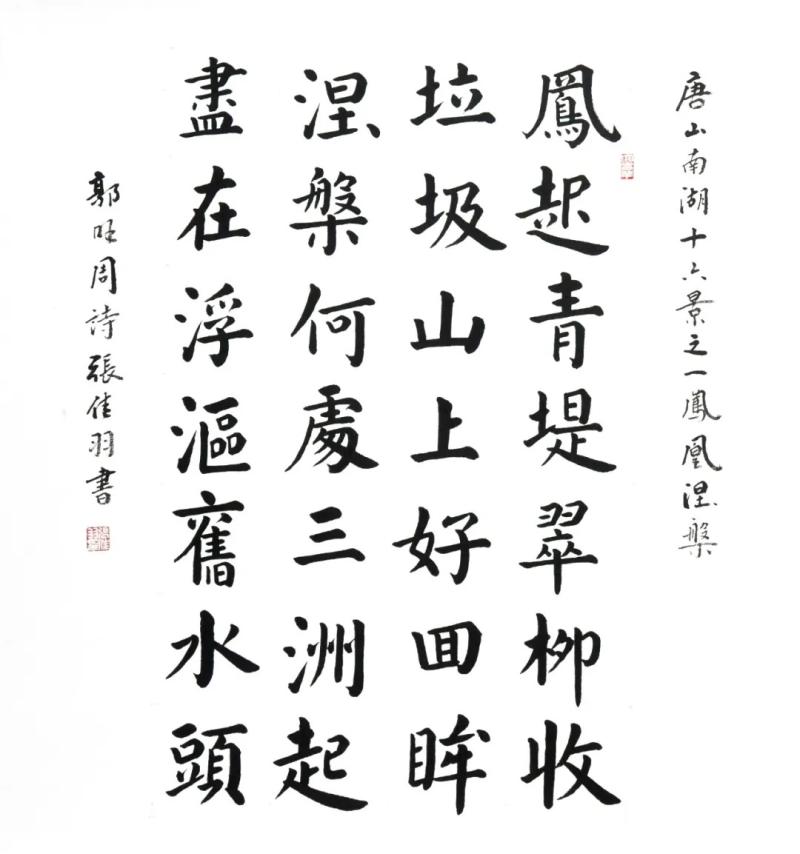 唐山南湖十六景之一鳳凰涅槃
鳳起青堤翠柳收
垃圾山上好回眸
涅槃何處三洲起
盡在浮漚舊水頭
郭旺周詩張佳羽書